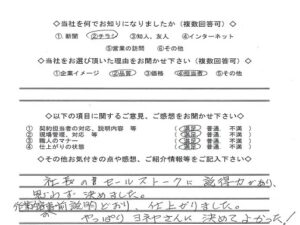 ◇当社を何でお知りになりましたか（複数回答可）◇
①新聞 ②チラシ ③知人、友人 ④インターネット
⑤営業の訪問 ⑥その他
◇当社をお選び頂いた理由をお聞かせ下さい（複数回答可）◇
①企業イメージ ②品質 ③価格 ④担当者 ⑤その他
◇以下の項目に関するご意見、ご感想をお聞かせ下さい◇
① 契約担当者の対応、説明内容 等 （満足 普通 不満）
② 現場管理、対応 等 （満足 普通 不満）
③ 職人のマナー （満足 普通 不満）
④ 仕上がりの状態 （満足 普通 不満）
◇その他お気付きの点や感想、ご紹介情報等をご記入下さい◇
社長のセールストークに説得力があり、
思わず決めました。
作業前説明どおり、仕上がりました。
やっぱりヨネヤさんに決めてよかった！